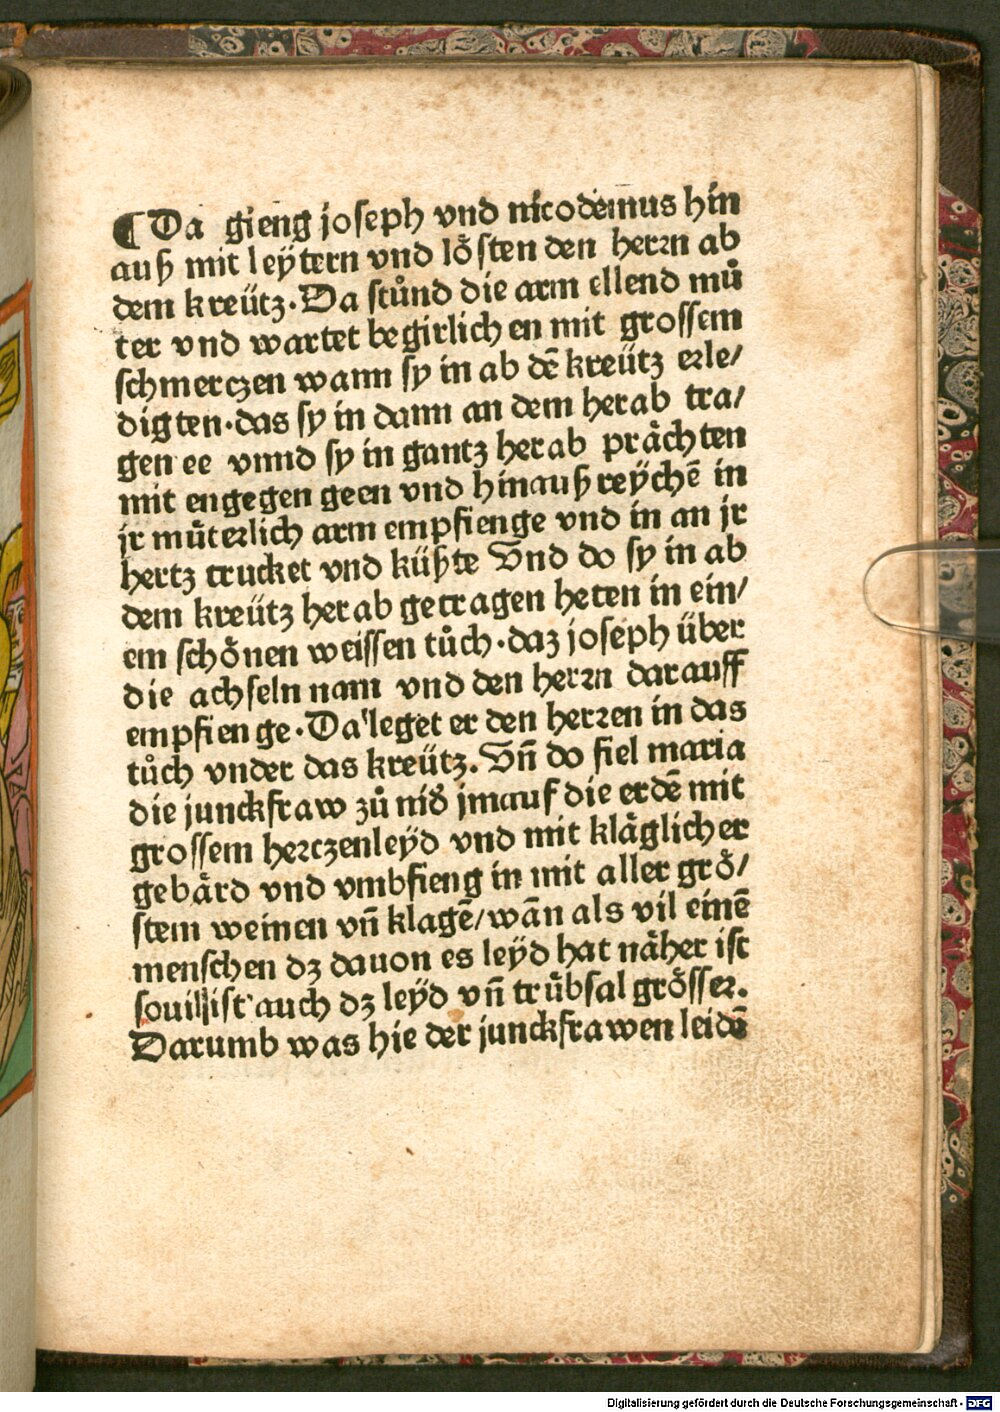 ¶ Da gieng joseph vnd nicodemus hin
auß mit leÿtern vnd loͤsten den herꝛn ab
dem kreütz. Da stuͦnd die arm ellend muͦ
ter vnd wartet begirlichen mit grossem
schmerczen wann sy in ab dē kreütz erle/
digten. das sy in dann an dem herab tra/
gen ee vnnd sy in gantz herab praͤchten
mit engegen geen vnd hinauß reÿchē in
jr muͤterlich arm empfienge vnd in an jr
hertz trucket vnd küßte Vnd do sy in ab
dem kreütz herab getragen heten in ein/
em schoͤnen weissen tuͦch. daz joseph über
die achseln nam vnd den herꝛn darauff
empfienge. Da leget er den herꝛen in das
tuͦch vnder das kreütz. Vn̄ do fiel maria
die junckfraw zuͦ nid' jm auf die erdē mit
grossem herczenleÿd vnd mit klaͤglicher
gebaͤrd vnd vmbfieng in mit aller groͤ/
stem weinen vn̄ klagē/wān als vil einē
menschen dz dauon es leÿd hat naͤher ist
souil ist auch dz leÿd vn̄ truͤbsal groͤsser.
Darumb was hie der junckfrawen leidē
Digitalisierung gefördert durch die Deutsche Forschungsgemeinschaft - DFG